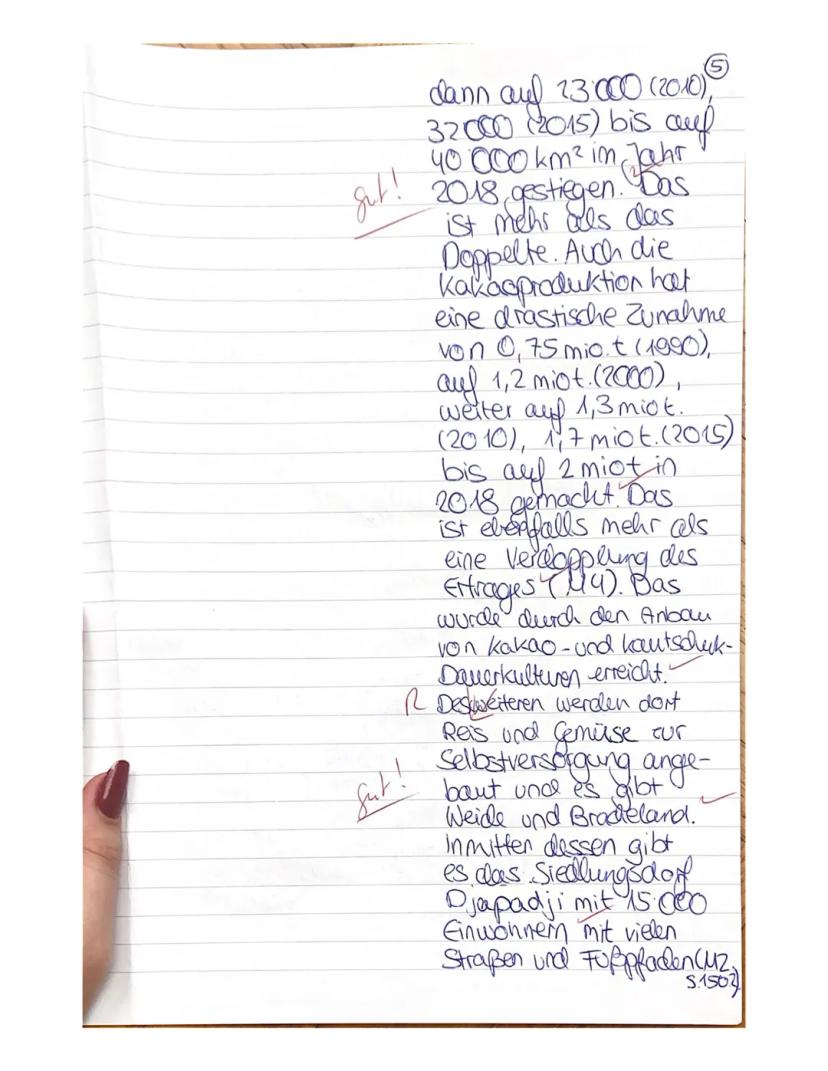 5
dann auf 23 000 (2010),
32000 (2015) bis auf
40 000 km² im Jahr
gut! 2018 gestiegen. Das
ist mehr als das
Doppelte. Auch die
Kakaoproduktion hat
eine drastische Zunahme
von 0,75 mio.t (1990),
auf 1,2 miot. (2000),
weiter auf 1,3 miot.
(2010), 1,7 miot. (2015)
bis auf 2 miot in
2018 gemacht. Das
ist ebenfalls mehr als
eine Verdopplung des
Ertrages (M4). Das
wurde durch den Anbau
von Kakao-und Kautschuk-
Dauerkulturen erreicht.
R Desweiteren werden dort
Reis und Gemüse zur
Selbstversorgung ange-
gut! baut und es gibt
Weide und Bracheland.
Inmitten dessen gibt
es das Siedlungsdorf
Djapadji mit 15 000
Einwohnern mit vielen
Straßen und Fußpfaden (M2,
S.150)